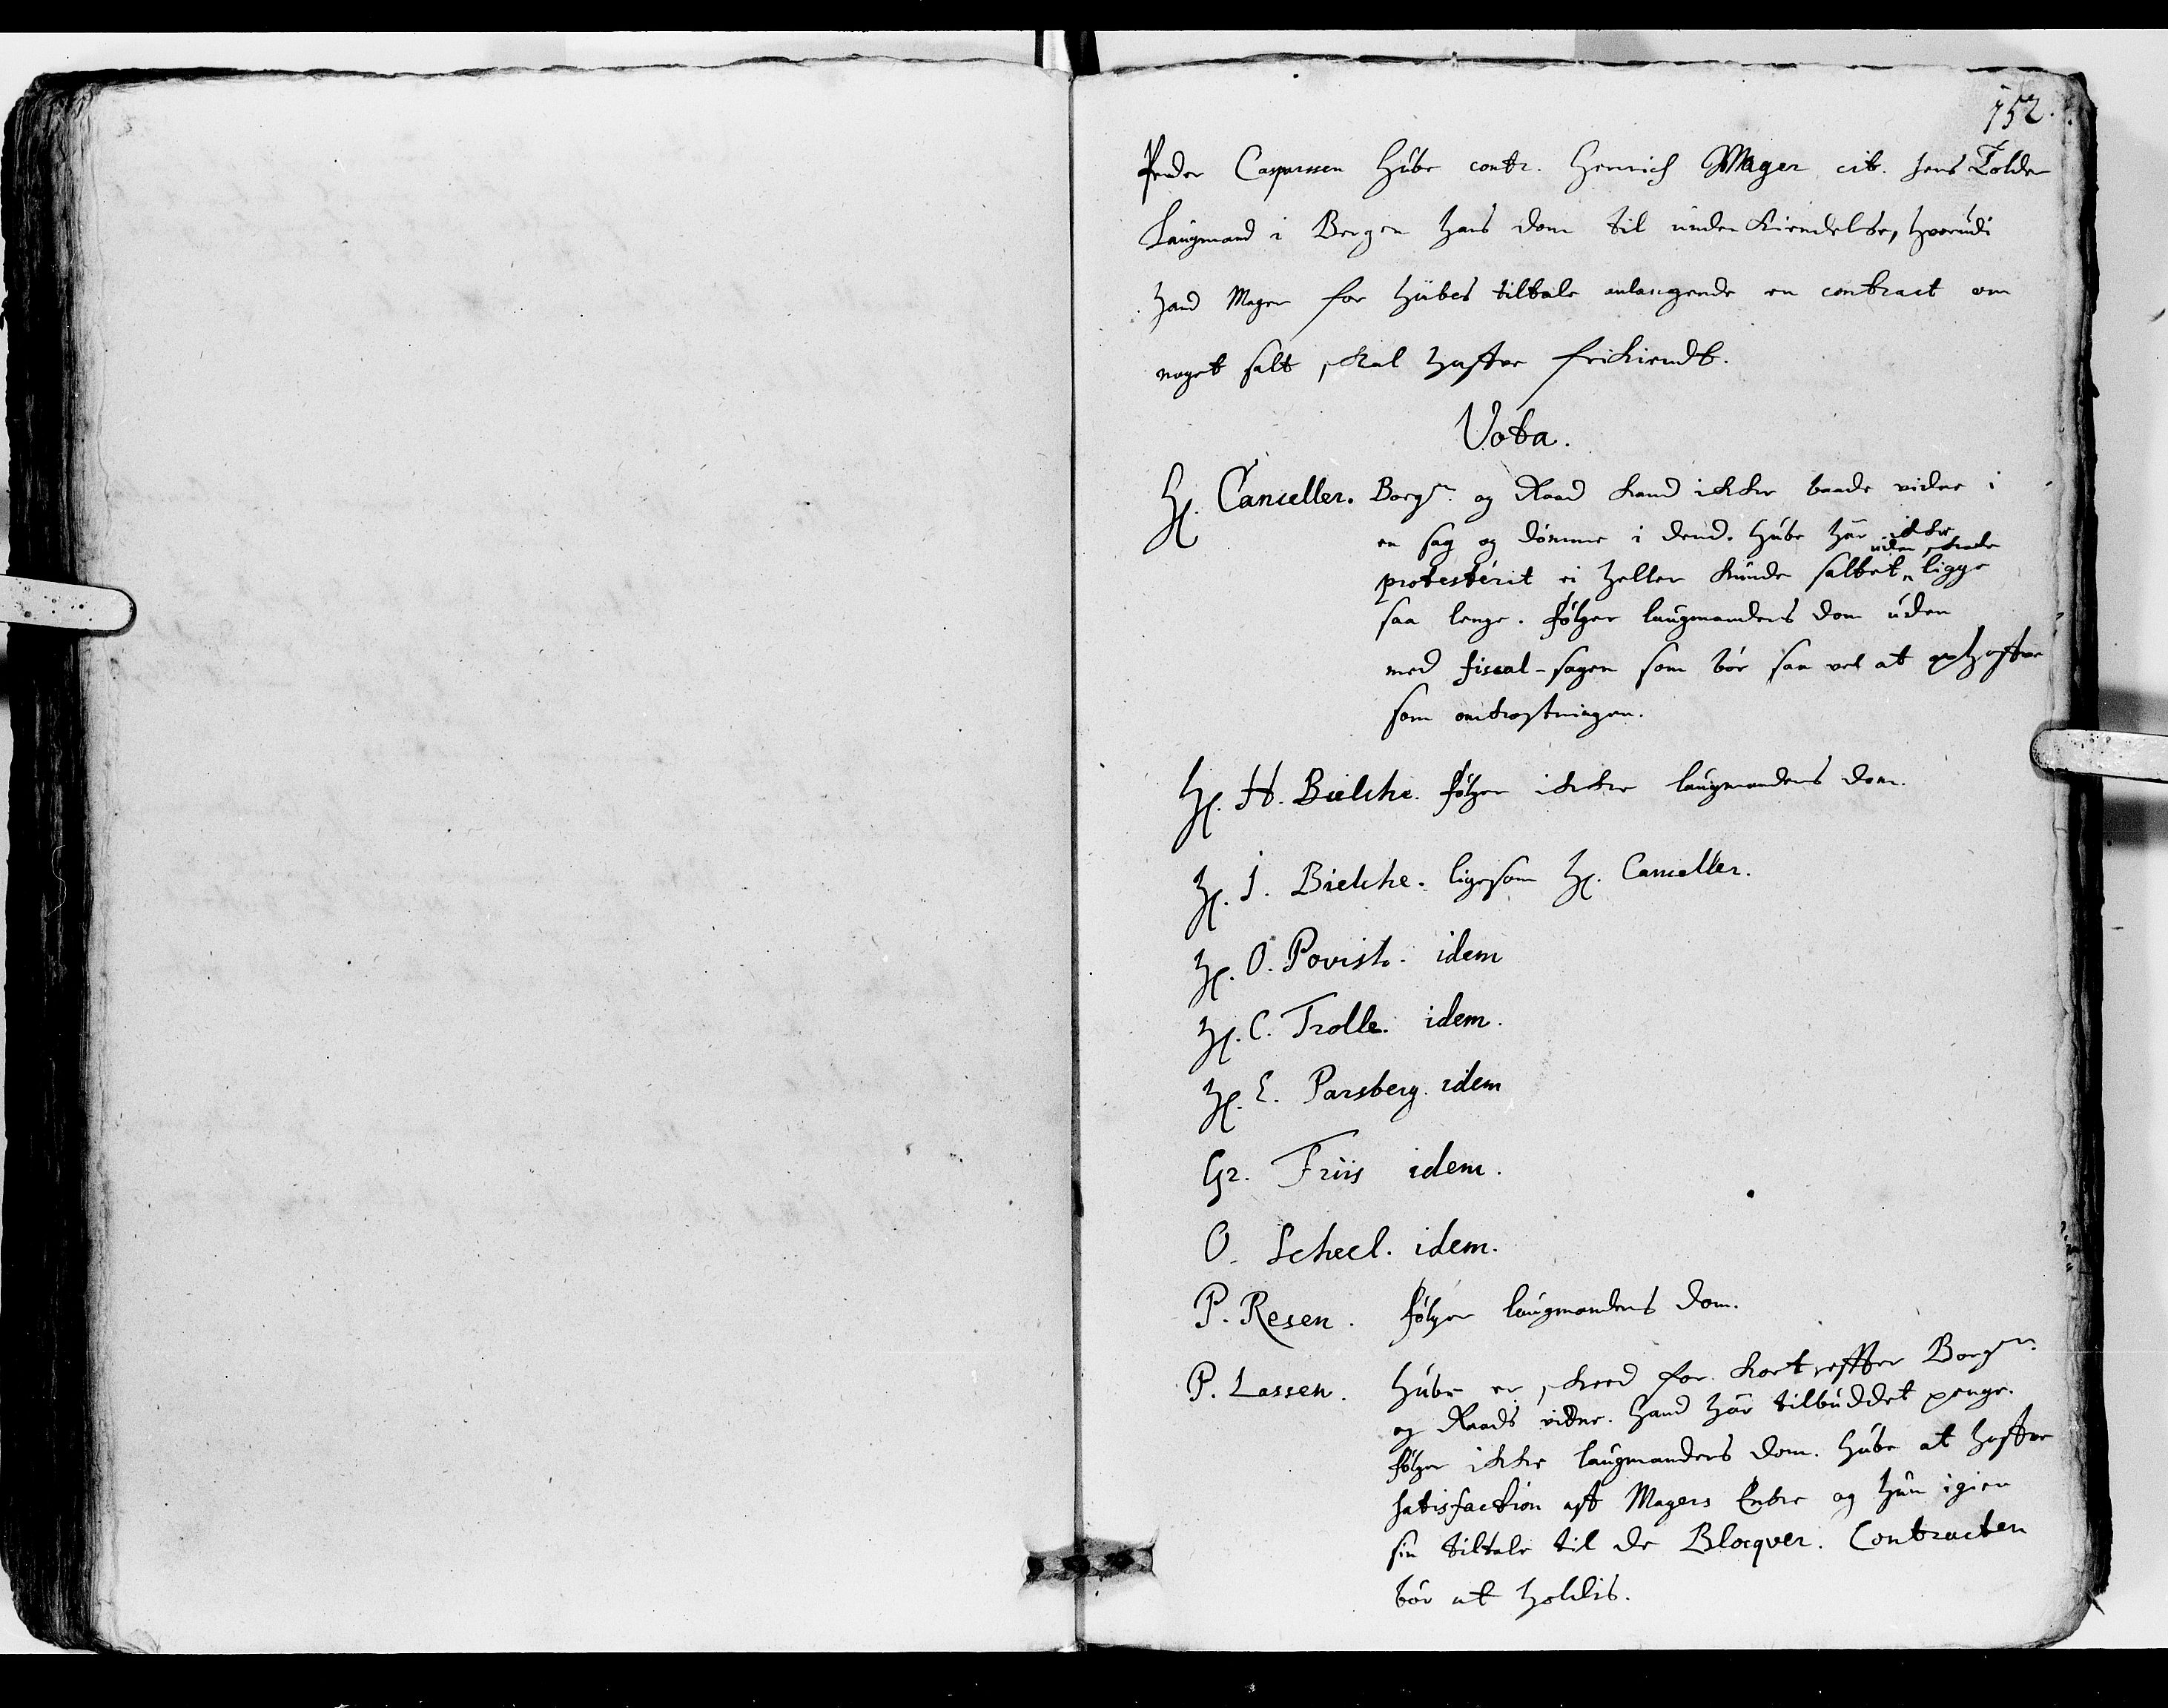 152.
Peder Casparssen Hübe contr. Henrich Mager cit. Jens Tolder
Laugmand i Bergen hans dom til underkiendelse, hvorudi
hand Mager for Hübes tiltale anlangende en contract om
noget salt skal haffve frikiendt.
Vota.
H. Canceller. Borgm. og Raad kand ikke baade vidne i
en sag og dömme i dend. Hübe har ikke
uden skade
protesterit ei heller kunde saltet ligge
saa lenge. fölger laugmandens dom uden
med fiscal-sagen som bör saa vel at ophæffve
som omkostningen.
H. H. Bielche. fölger ikke laugmandens dom.
H. J. Bielche. ligesom H. Canceller.
H. O. Povisk. idem
H. C. Trolle. idem.
H. E. Parsberg. idem
Gr. Friis idem.
O. Scheel. idem.
P. Resen. fölger laugmandens dom.
P. Lassen. Hübe er skeed for kort effter Borgm.
og Raads vidne. hand har tilbuddet penge.
fölger ikke laugmandens dom. Hübe at haffve
satisfaction aff Magers Enke og hun igien
sin tiltale til de Blocqver. Contracten
bör at holdis.